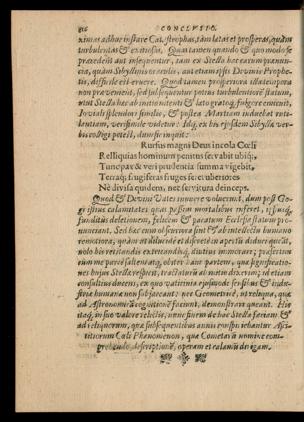 816 CONCLVSIO.
ximos adhuc instare Catastrophas, tàm latas et prosperas, quàm
turbulentas & exitiosas. Quàm tamen quando & quo modo se
præcedent aut insequentur, tam ex Stella hac earum prænun-
cia, quàm Sibyllinis oraculis, aut etiam ipsis Divinis Prophe-
tis, difficile est eruere. Quod tamen prosperiora
non prævenient, sed subsequentur potius turbulentiorē statum,
uti Stella hæc ab initio nitenti & læto gratoq; fulgore emicuit,
Ioviali splendori simili, & postea Martiam induebat ruti-
lantiam, verisimile videtur: Idq; ex his ejusdem Sibyllæ ver-
bis colligi potest, dum sic inquit:
Rursus magni Deus incola Cœli
Relliquias hominum penitus servabit ubiq;,
Tunc pax & veri prudentia summa vigebit,
Terraq; frugiferas fruges feret uberiores
Nè divisa quidem, nec servitura deinceps.
Quod & Divini Vates innuere voluerunt, dum post Go-
gi istius calamitates quas passim mortalibus inferet, ipsiusq;
funditus deletionem, felicem & pacatum Ecclesiæ statum pro-
nunciant. Sed hæc cum obscuriora sint & ab intellectu humano
remotiora, quàm ut dilucidè et discretè in apertū diduci queāt,
nolo his reitandis extricandisq; diutius immorari;
rem me parte satisfactam, obiter hanc partem, quæ significatio-
nes hujus Stellæ respicit, tractaturū ab initio dixerim; id etiam
consultius ducens, ex quo vaticinia ejusmodi sensibus & indu-
striæ humanæ non subjaceant: nec Geometricè, ut reliqua, quæ
ad Astronomicā cognitionē faciunt, demonstrari queant. His
itaq; in suo valore relictis, nunc finem de hac Stella faciam &
ad reliquorum, quæ subsequentibus annis conspiciebantur Asci-
titiorum Cœli Phænomenōn, quæ Cometarū nomine com-
prehendo, descriptionē, operam et calamū dirigam.